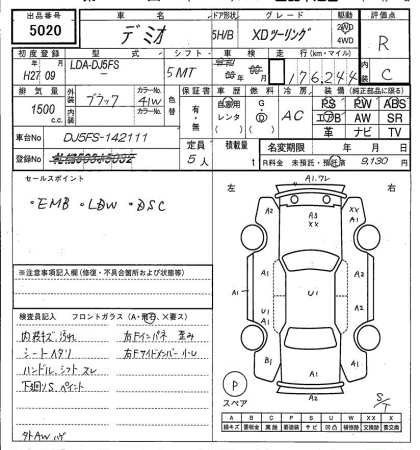 出品番号 車名 ドア形状 グレード 駆動 評価点
5020 デミオ 5H/B XDツーリング 2WD 4WD R
初度登録 型式 シフト 車検 走行(km・マイル) 内装
H27年09月 LDA-DJ5FS 5MT 年 月 176,244 C
排気量 外装色 カラーNo. 色替 保証書 車歴 燃料 冷房 装備(純正部品に限る)
1500c.c. ブラック 41W 有・無 自家用 レンタ G・D AC PS PW ABS
エアB AW SR
革 ナビ TV
車台No DJ5FS-142111 定員 積載量 名変期限 年 月 日
登録No 5人 t R料金 未預託・預託 9,130円
セールスポイント
・EMB ・LDW ・DSC
左 右
A1.ワレ
A2 A3 XX XX A1
A1 A1 U1 A1
B1 A1 A2
※注意事項記入欄(修復・不具合箇所および状態等)
検査員記入 フロントガラス(A・飛石、×要ス)
内装キズ、汚れ 右Fインパネ 歪み
シートヘタリ 右Fサイドメンバー 小U
ハンドル、シフト スレ
下廻りS、ペイント
外AW ハゲ
P
スペア
S/T
A B C P S U W X XX
線キズ 要板金 腐蝕 要塗装 サビ 凹凸 補修跡 要交換 交換跡